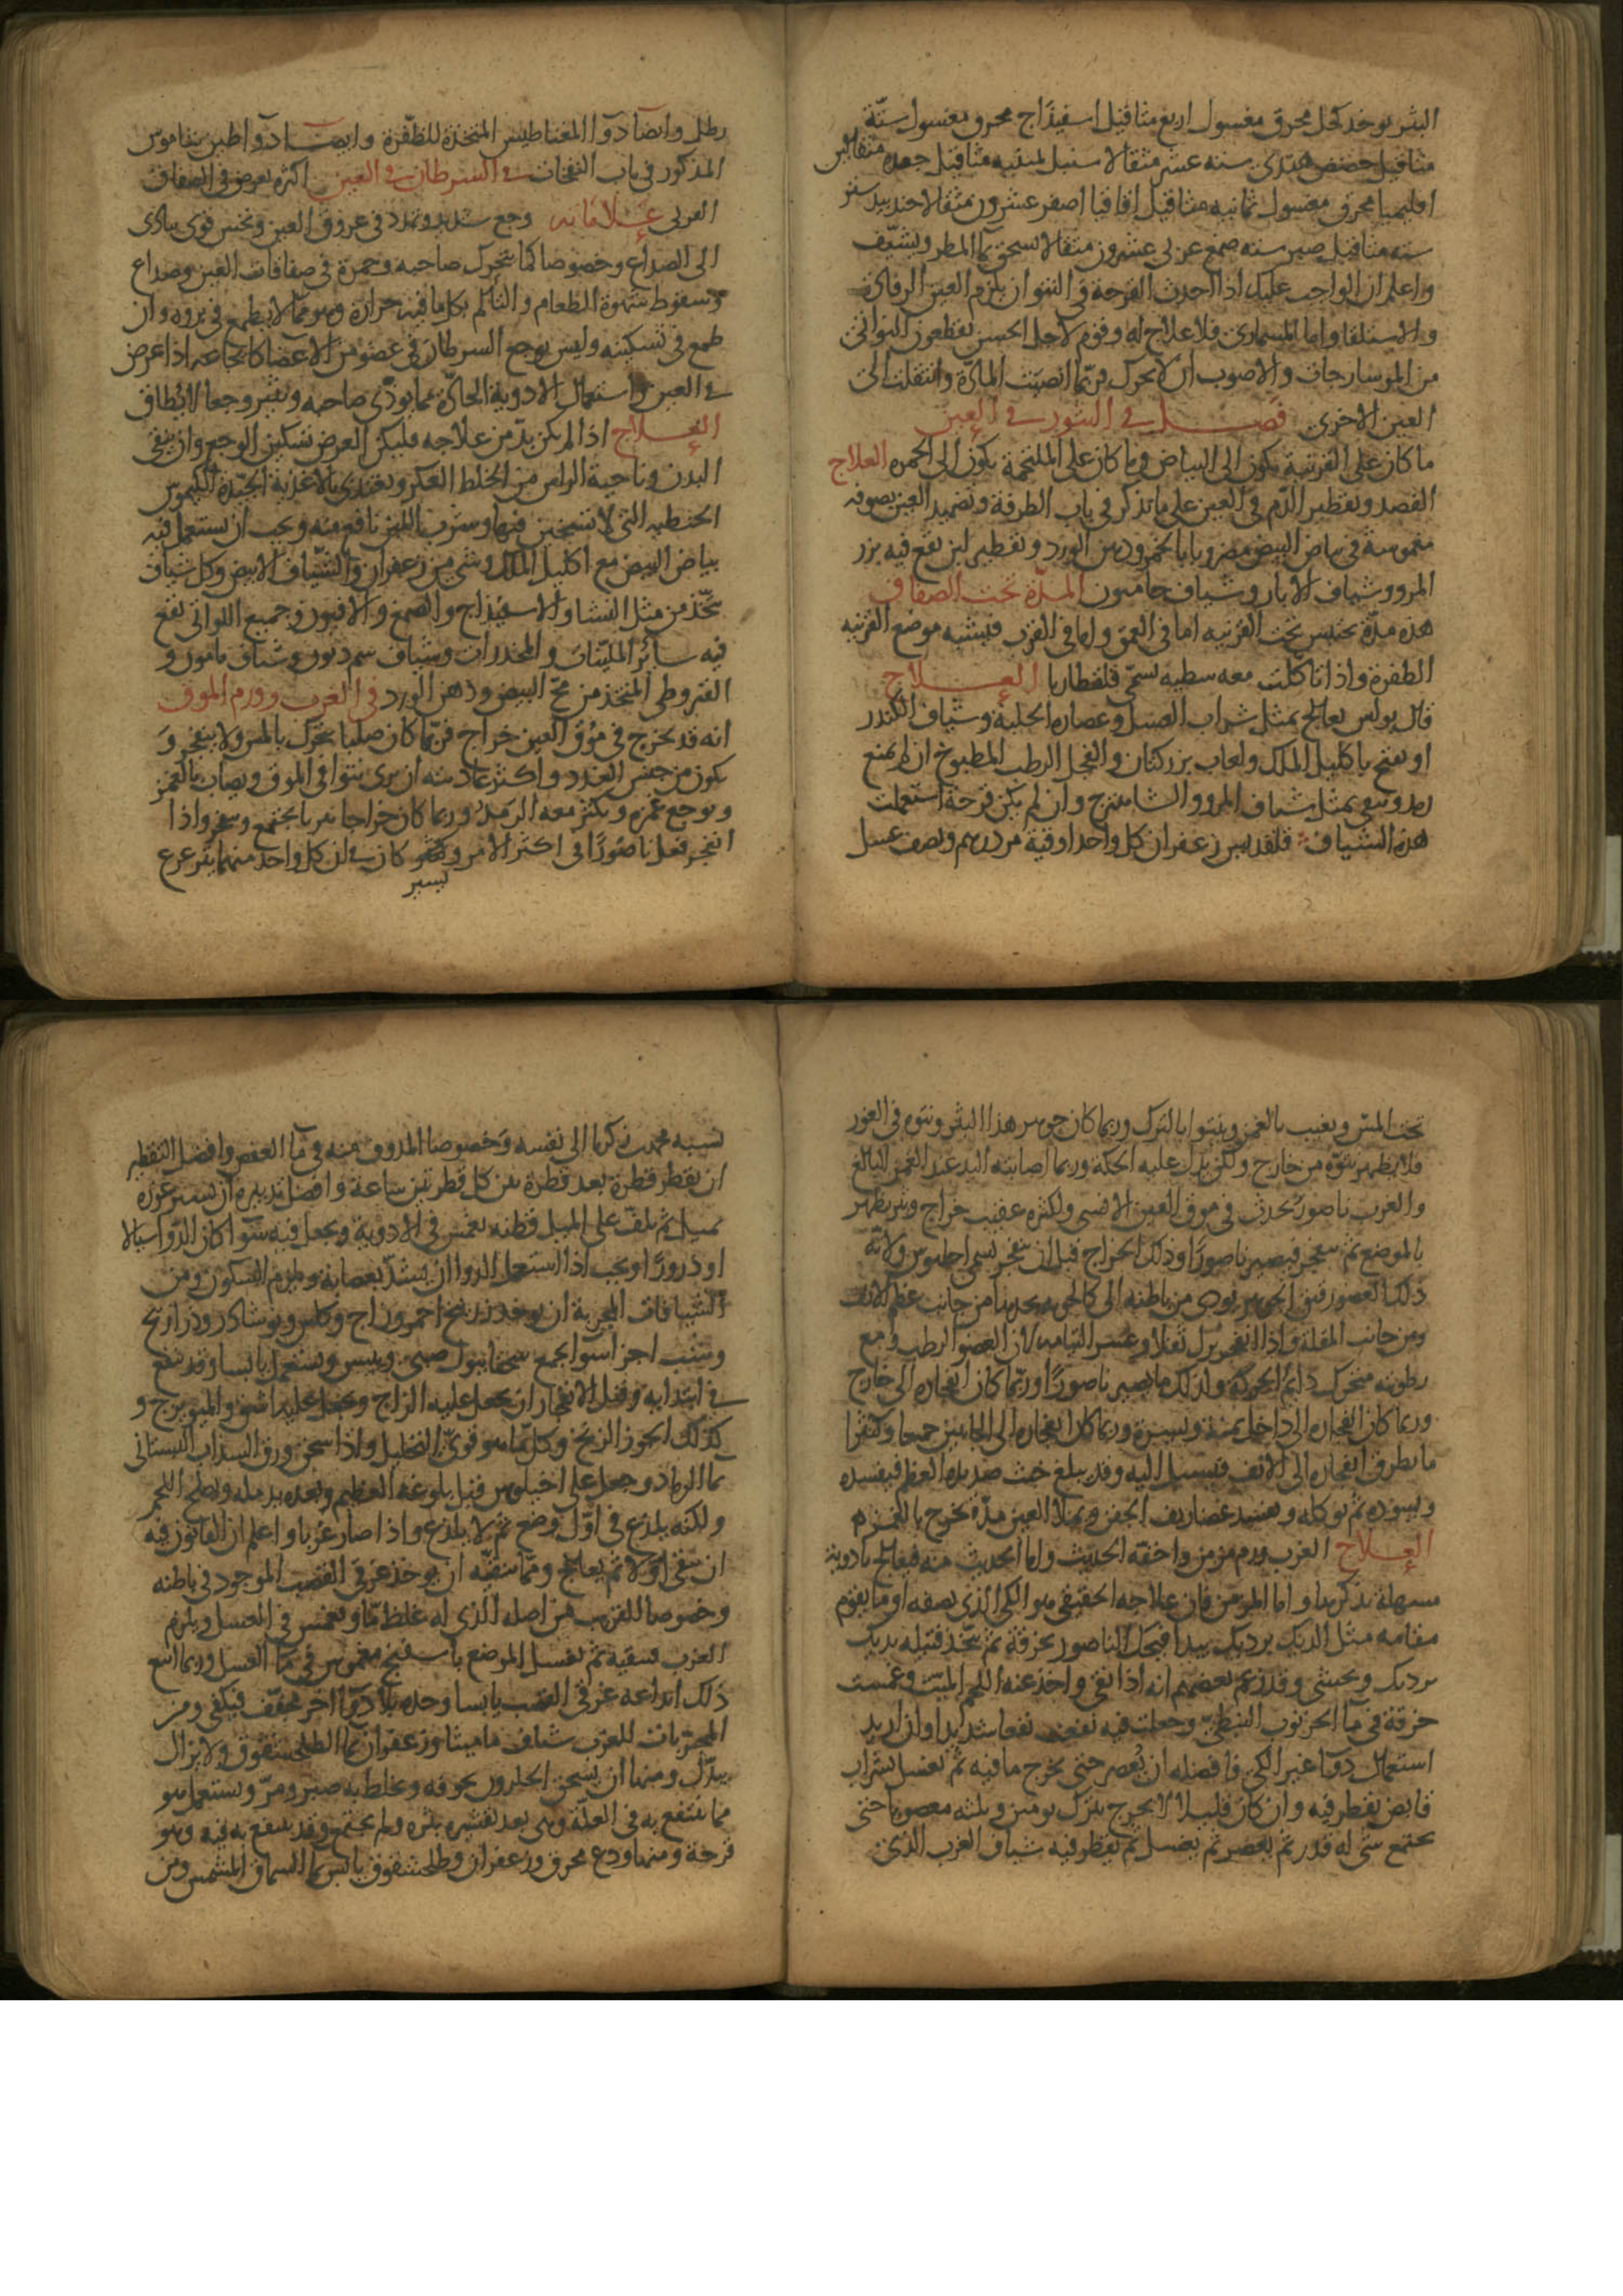 البثر يوخذ كحل محرق مغسول اربع مثاقيل اسفيداج محرق مغسول ستة
مثاقيل حضض هندى سته عشر مثقالا سنبل ثمنيه مثاقيل جعده مثقالين
اقليميا محرق مغسول ثمانيه مثاقيل اقاقيا اصفر عشرون مثقالا جندبيدستر
سته مثاقيل صبر سته صمغ عربى عشرون مثقالا يسحق بما المطر ويشيّف
واعلم ان الواجب عليك اذا احدث القرحة فى النتو ان يلزم العين الرفاىد
والاستلقا واما المسمارى فلا علاج له وقوم لاجل الحسن يقطعون النواتى
من الموسارجات والاصوب ان لا يحرك فربّما انصبّت المادّة وانتقلت الى
العين الاخرى فصل فى البثور فى العين
ما كان على القرنية يكون الى البياض وما كان على الملتحمة يكون الى الحمره العلاج
الفصد وتقطير الدّم فى العين على ما نذكر فى باب الطرفة وتضميد العين بصوفه
مغموسة فى بياض البيض مضروبا بالخمر ودهن الورد وتقطير لبن نقع فيه بزر
المرو وشياف الابار وشياف حامون المدّة تحت الصفاق
هذه مدّة تحتبس تحت القرنيه اما فى العمق واما فى القرب فيشبه موضع القرنيه
الظفرة واذا تاكلت معه سطيه تسمّى قلقطاريا العلاج
قال بولس يعالج بمثل شراب العسل وعصاره الحلبة وشياف الكندر
او يفتح باكليل الملك ولعاب بزركتان والفجل الرطب المطبوخ ان لم يمنع
رمد وينقى بمثل شياف المرو والشاهترج وان لم يكن قرحة استعملت
هذه الشياف قلقديس زعفران كل واحد اوقية مر درهم ونصف عسل
رطل وايضا دوا المغناطيس المتخذة للظّفرة وايضا دوا طين ساموس
المذكور فى باب النفخات فى السرطان فى العين اكثره يعرض فى الصفاق
القرنى علاماته وجع شديد وتمدد فى عروق العين ونخس قوى يتادى
الى الصداع وخصوصا كما يتحرك صاحبه وحمرة فى صفاقات العين وصداع
وسقوط شهوة الطعام والتالم بكل ما فيه حرارة وهو ممّا لا يطمع فى بروه وان
طمع فى تسكينه وليس يوجع السرطان فى عضو من الاعضا كايجاعه اذا عرض
فى العين واستعمال الادوية الحادّة مما يوذّى صاحبه ويثير وجعا لا يطاق
العلاج اذا لم يكن بدّ من علاجه فليكن الغرض تسكين الوجع وان ينقى
البدن وناحية الراس من الخلط العكر ويغتذى بالاغذية الجيّدة الكيموس
الحنطيه التى لا تسخين فيها وشرب اللبن نافع منه ويجب ان يستعمل فيه
بياض البيض مع اكليل الملك وشى من زعفران والشياف الابيض وكل شياف
يتّخذ من مثل النشا والاسفيذاج والصمغ والافيون وجميع اللواتى تقع
فيه ساير المليّنات والمخدرات وشياف سمرديون وشياف مامون و
القيروطى المتخذ من محّ البيض ودهن الورد فى الغرب وورم الموق
انه قد يخرج فى مؤق العين خراج فربّما كان صلبا يتحرك بالمس ولا ينفجر و
يكون من جنس الغدد واكثر عادته ان يرى نتوا فى الموق ويصاب بالغمز
ويوجع غمزه ويكثر معه الرمد وربما كان خراجا بثريا يجتمع وينفجر واذا
انفجر فعل ناصورًا فى اكثر الامر ويشتركان فى ان كل واحد منهما يتزعزع
يسير
تحت المسّ ويغيب بالغمز وينتوا بالترك وربما كان جوهر هذا البثر ونتوه فى الغور
فلا يظهر نتوّه من خارج ولكن يدلّ عليه الحكة وربما اصابته اليد عند الغمز البالغ
والغرب ناصور يحدث فى موق العين الانسى واكثره عقيب خراج وبثر يظهر
بالموضع ثم ينفجر فيصير ناصورًا وذلك الخراج قبل ان ينفجر يسمى اخيلوس ولانّه
ذلك العضو رقيق الجوهر يودى من باطنه الى ظاهره من جانب عظم الانف
ومن جانب المقلة واذا انفجر ترك ثقلا وعسر التيامه لان العضو الرطب ومع
رطوبته متحرك دايم الحركة ولذلك ما يصير ناصورًا وربّما كان انفجاره الى خارج
وربما كان انفجاره الى داخل يمنة ويسرة وربما كان انفجاره الى الجانبين جميعا وكثيرا
ما يطرق انفجاره الى الانف فيسيل اليه وقد يبلغ خبث صديده العظم فيفسده
ويسوده ثم يوكله ويفسد غضاريف الجفن ويملا العين مدّه يخرج بالغمز
العلاج الغرب ورم مزمن واخفّه الحديث واما الحديث منه فيعالج بادوية
سهلة نذكرها واما المزمن فان علاجه الحقيقى هو الكى الذى نصفه او ما يقوم
مقامه مثل الديك برديك يبدا فيحك الناصور بخرقة ثم يتّخذ فتيله بديك
برديك ويحشى وقد زعم بعضهم انه اذا نقى واخذ عنه اللحم الميّت وغمست
خرقة فى ما الخرنوب النبطىّ وجعلت فيه نفعت نفعا شديدا وان اريد
استعمال دوا غير الكى فافضله ان يعصر حتى يخرج ما فيه ثم يغسل بشراب
قابض يقطر فيه وان كان قليلا لا يخرج يترك يومين وثلثه معصوبا حتى
يجتمع شى له قدر ثم يعصر ثم يغسل ثم يقطر فيه شياف الغرب الذى
نسبه محمد بن زكريا الى نفسه وخصوصا المدوف منه فى ما العفص وافضل التقطير
ان يقطر قطرة بعد قطرة بين كل قطرتين ساعة وافضل تدبيره ان يسبر غوره
بميل ثم يلفّ على الميل قطنه يغمس فى الادوية ويجعل فيه سوا كان الدّوا سيالا
او ذرورًا ويجب اذا استعمل الدوا ان يشدّ بعصابة ويلزم السكون ومن
الشيافات المجربة ان يوخذ زرنيخ احمر وزاج وكلس ونوشادر وذراريح
وشب اجزا سوا يجمع سحقا ببول صبى وييبس ويستعمل يابسا وقد ينفع
فى ابتدايه وقبل الانفجار ان يجعل عليه الزاج ويجعل عليه اشق والميويزج و
كذلك الجوز الزنخ وكلّ ما هو قوىّ التحليل واذا سحق ورق السذاب البستانى
بما الرماد وجعل على اخيلوس قبل بلوغه العظم وبعده يدمله ويصلح اللحم
ولكنه يلذع فى اوّل وضع ثم لا يلذع واذا صار غربا واعلم ان القانون فيه
ان ينقى اولا ثم يعالج وممّا ينقّيه ان يوخذ غرقى القصب الموجود فى باطنه
وخصوصا للقريب من اصله الذى له غلظ مّا ويغمس فى العسل ويلزم
الغرب فينقيه ثم يغسل الموضع باسفنج مغموس فى ما العسل وربما اتبع
ذلك ايداعه غرقى القصب يابسا وحده بلا دوّا اخر مجفّف فيكفى ومن
المجرّبات للغرب شياف ماميثا وزعفران بما الطلحشقوق ولا يزال
يبدّل ومنها ان يسحق الحلزون بخرقه ويخلط به صبر ومرّ ويستعمل هو
مما ينتفع به فى العلّة وهى بعد بقشره بثره ولم يجتمع وقد ينتفع به فيه وهو
قرحة ومنها ودع محرق وزعفران وطلحشقوق يابس بما السماق المشمس ومن